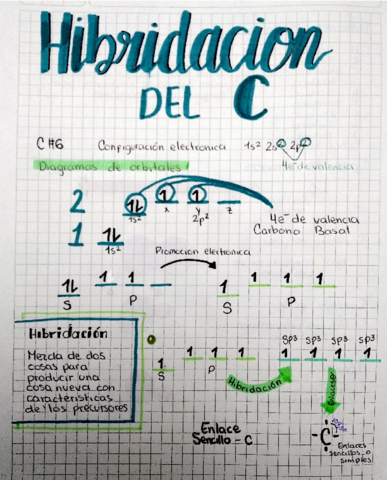 Hibridacion
DEL C
C #6 Configuración electronica 1s² 2s² 2p²
Diagramas de orbitales 4e⁻ de valencia
2 1L 1 1
1s² x y z
2p²
4e⁻ de valencia
Carbono Basal
1 1L
1s²
Promocion electronica
1L 1 1
S P
1 1 1 1
S P
Hibridación
Mezcla de dos
cosas para
producir una
cosa nueva con
características
de los precursores
1 1 1 1
S P
Hibridación
SP³ SP³ SP³ SP³
1 1 1 1
Enlaces
Enlace
Sencillo - C
-C-
Enlaces
sencillos o
simples